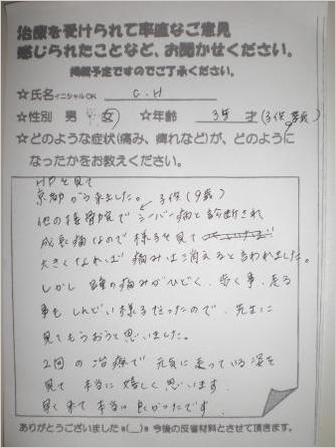 治療を受けられて率直なご意見
感じられたことなど、お聞かせください。
掲載予定ですのでご了承ください。
☆氏名 イニシャルOK C.H
☆性別 男 女 ☆年齢 35 才(子供 9歳)
☆どのような症状(痛み、痺れなど)が、どのように
なったかをお教えください。
HPを見て
京都から来ました。子供(9歳)
他の接骨院でシーバー病と診断され
成長痛なので様子を見て
大きくなれば痛みは消えると言われました。
しかし 踵の痛みがひどく、歩く事、走る
事もしんどい様子だったので、先生に
見てもらおうと思いました。
2回の治療で 元気に走っている姿を
見て 本当に嬉しく思います。
見て来て本当に良かったです。
ありがとうございました m(__)m 今後の反省材料とさせて頂きます。